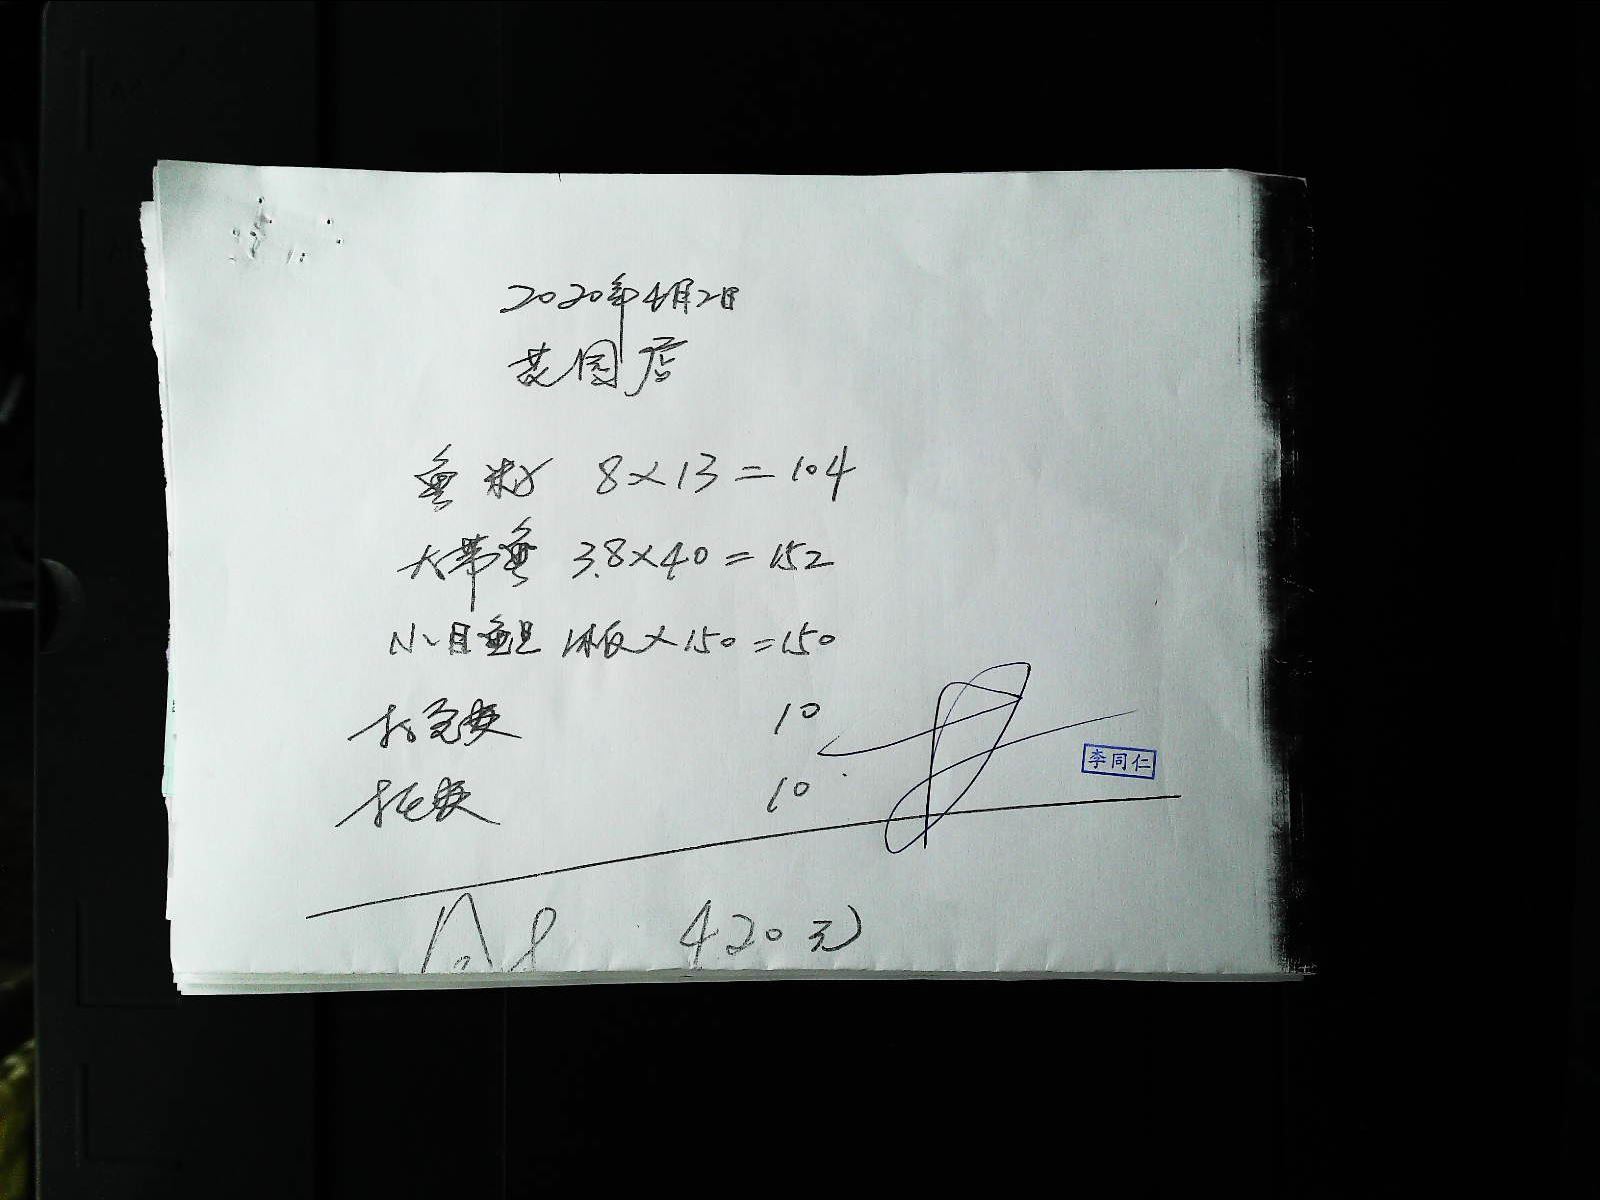 2020年4月2日
花园店
鱼籽 8×13=104
大带鱼 3.8×40=152
小目鱼旦 1板×150=150
10
李同仁
10
420元